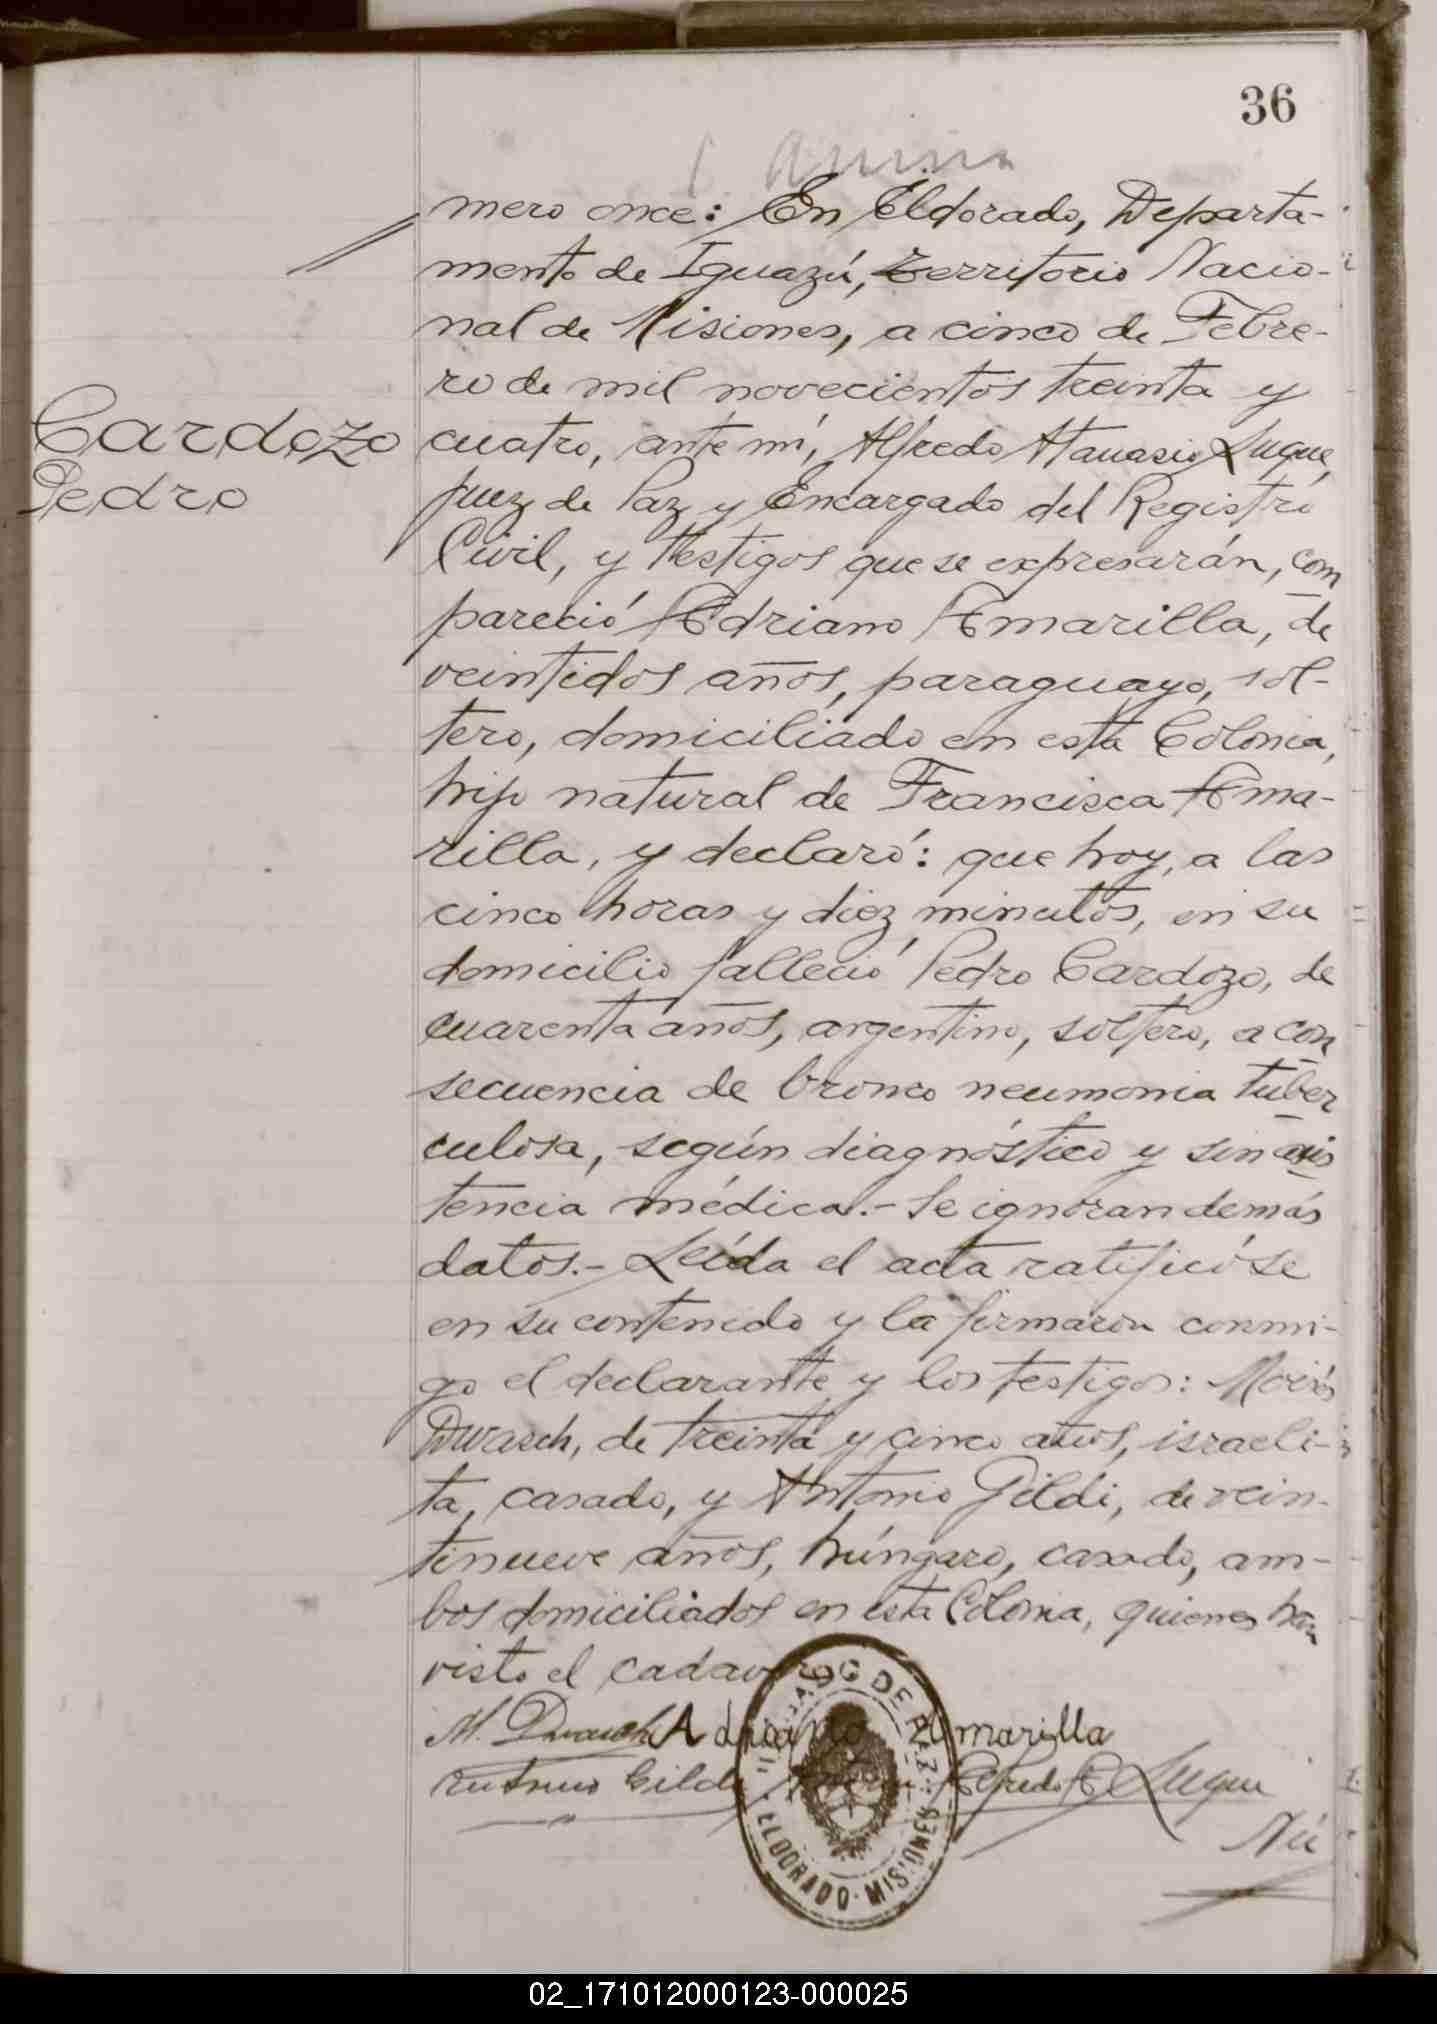 36
mero once: En Eldorado, Departa-
mento de Iguazú, Territorio Nacio-
nal de Misiones, a cinco de Febre-
ro de mil novecientos treinta y
Cardozo
Pedro
cuatro, ante mí, Alfredo Atanasio Luque,
Juez de Paz y Encargado del Registro
Civil, y testigos que se expresarán, com
pareció Adriano Amarilla, de
veintidos años, paraguayo, sol-
tero, domiciliado en esta Colonia,
hijo natural de Francisca Ama-
rilla, y declaró: que hoy, a las
cinco horas y diez minutos, en su
domicilio falleció Pedro Cardozo, de
cuarenta años, argentino, soltero, a con
secuencia de bronco neumonia tuber
culosa, según diagnóstico y sin asis
tencia médica.- Se ignoran demás
datos.- Leída el acta ratificóse
en su contenido y la firmaron conmi-
go el declarante y los testigos:
Durasch, de treinta y cinco años, israeli-
ta, casado, y Antonio Gildi, de vein-
tinueve años, húngaro, casado, am-
bos domiciliados en esta Colonia, quienes han
visto el cadaver
M. Durasch Adriano Amarilla
Gildi Alfredo A. Luque
Nú
JUZGADO DE PAZ
ELDORADO-MISIONES
02_171012000123-000025